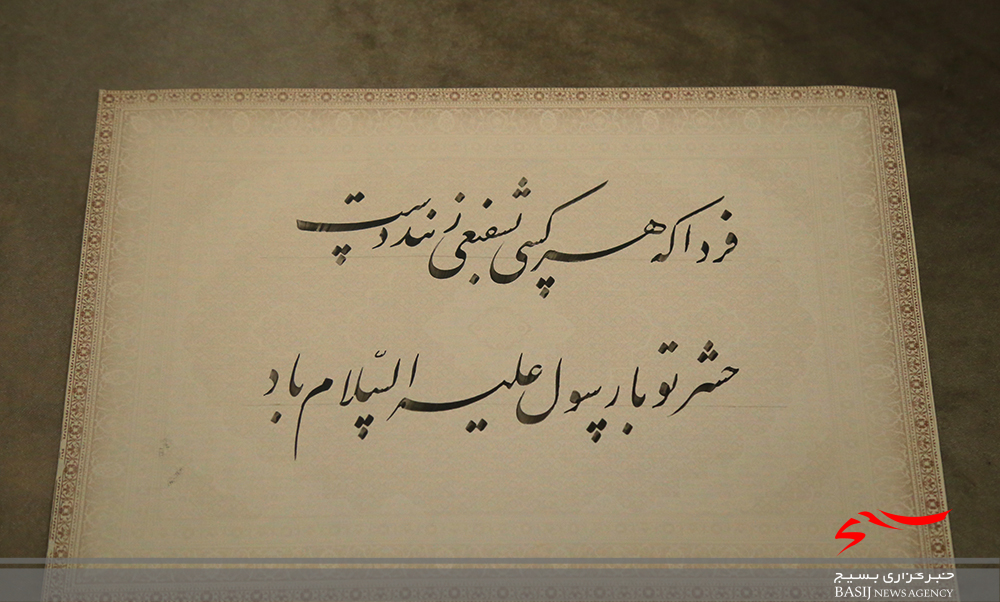 فردا که هر کسی بشفیعی زنند دست
حشر تو با رسول علیه السّلام باد
خبرگزاری بسیج
BASIJ NEWS AGENCY